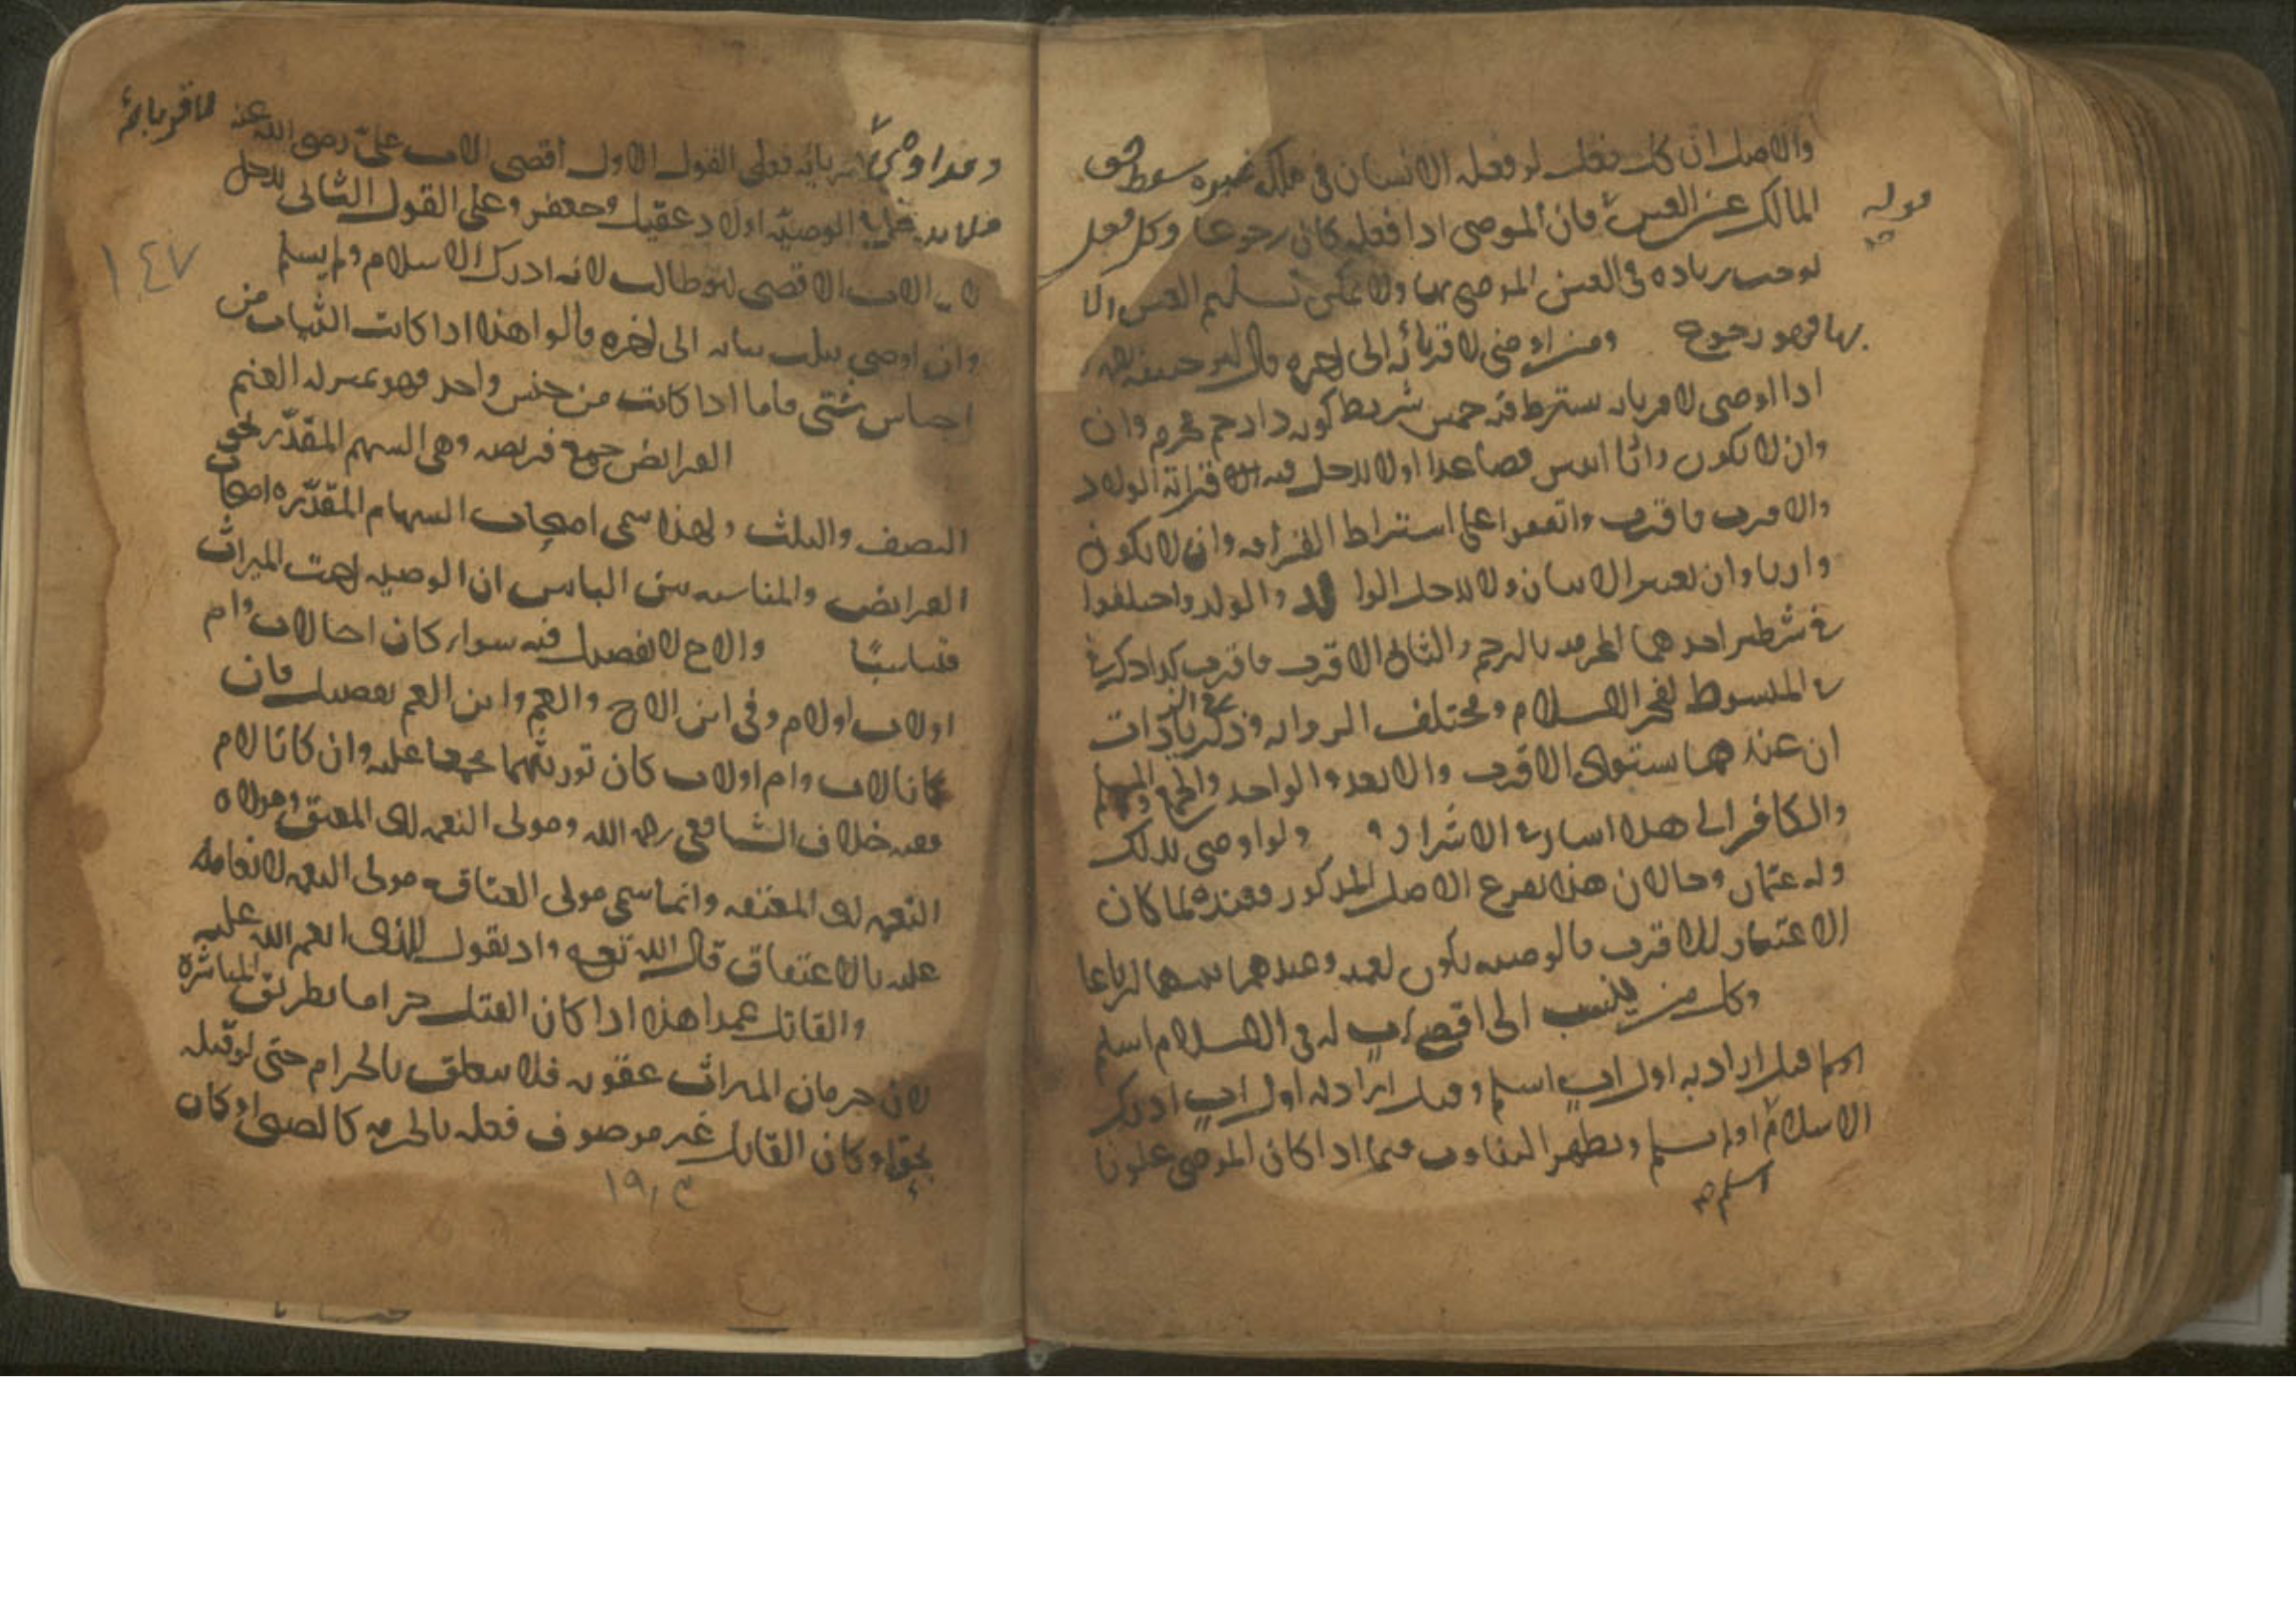 والاصل ان كل فعل لو فعله الانسان في ملك غيره سقط حق
قوله
المالك عن العين فان الموصى اذا فعله كان رجوعا وكل فعل
يوجب زيادة في العين الموصى بها ولا يمكن تسليم العين الا
بها فهو رجوع ومن اوصى لاقربائه الى اخره قال ابو حنيفه
اذا اوصى لاقربائه يشترط فيه خمس شرايط كونه ذا رحم محرم وان
وان لا يكون واثنا اثنين فصاعدا اولا يدخل فيه قرابة الولاد
والاقرب فاقرب واتفقوا على اشتراط القرابه وان لا يكون
وارثا وان يعتبر الاثنان ولا يدخل الوالد والولد واختلفوا
في شطر احدهما المحرميه بالرحم والثانى الاقرب فاقرب كذا ذكر في
في المبسوط لفخر الاسلام ومختلف الروايه وذكر في الزيادات
ان عندهما يستوى الاقرب والابعد والواحد والجمع والمسلم
والكافر الى هذا اشار في الاشراف ولو اوصى بذلك
وله عمان وخالان هذا تفريع الاصل المذكور فعنده لما كان
الاعتبار للاقرب فالوصيه يكون لعميه وعندهما بينهما ارباعا
وكل من ينسب الى اقصى اب له في الاسلام اسلم
قيل اراد به اول اب اسلم وقيل اراد به اول اب ادرك
الاسلام او لم يسلم ويظهر التفاوت فيما اذا كان الموصى علويا
اسلم
فاقربائه
فعلى القول الاول اقصى الاب على رضى الله عنه
فلا يدخل في الوصيه اولاد عقيل وجعفر وعلى القول الثانى يدخل
الاب الاقصى ابو طالب لانه ادرك الاسلام ولم يسلم
١٤٧
وان اوصى بثلث ثيابه الى اخره قالوا هذا اذا كانت الثياب من
اجناس شتى فاما اذا كانت من جنس واحد فهو بمنزله الغنم
الفرائض جمع فريضه وهى السهم المقدر نحو
النصف والثلث ولهذا سمى اصحاب السهام المقدره اصحاب
الفرائض والمناسبه بين البابين ان الوصيه اخت الميراث
فتناسبا والاخ لا تفصيل فيه سواء كان اخا لاب وام
او لاب او لام وفى ابن الاخ والعم وابن العم تفصيل فان
كانا لاب وام او لاب كان توريثهما مجمعا عليه وان كانا لام
ففيه خلاف الشافعى رحمه الله ومولى النعمه اى المعتق ومولاة
النعمه اى المعتقه وانما سمى مولى العتاقه مولى النعمه لانعامه
عليه بالاعتاق قال الله تعالى واذ تقول للذى انعم الله عليه
والقاتل عمدا هذا اذا كان القتل حراما بطريق المباشرة
لان حرمان الميراث عقوبه فلا يتعلق بالحرام حتى لو قتله
بحق او كان القاتل غير موصوف فعله بالحرمه كالصبى او كان